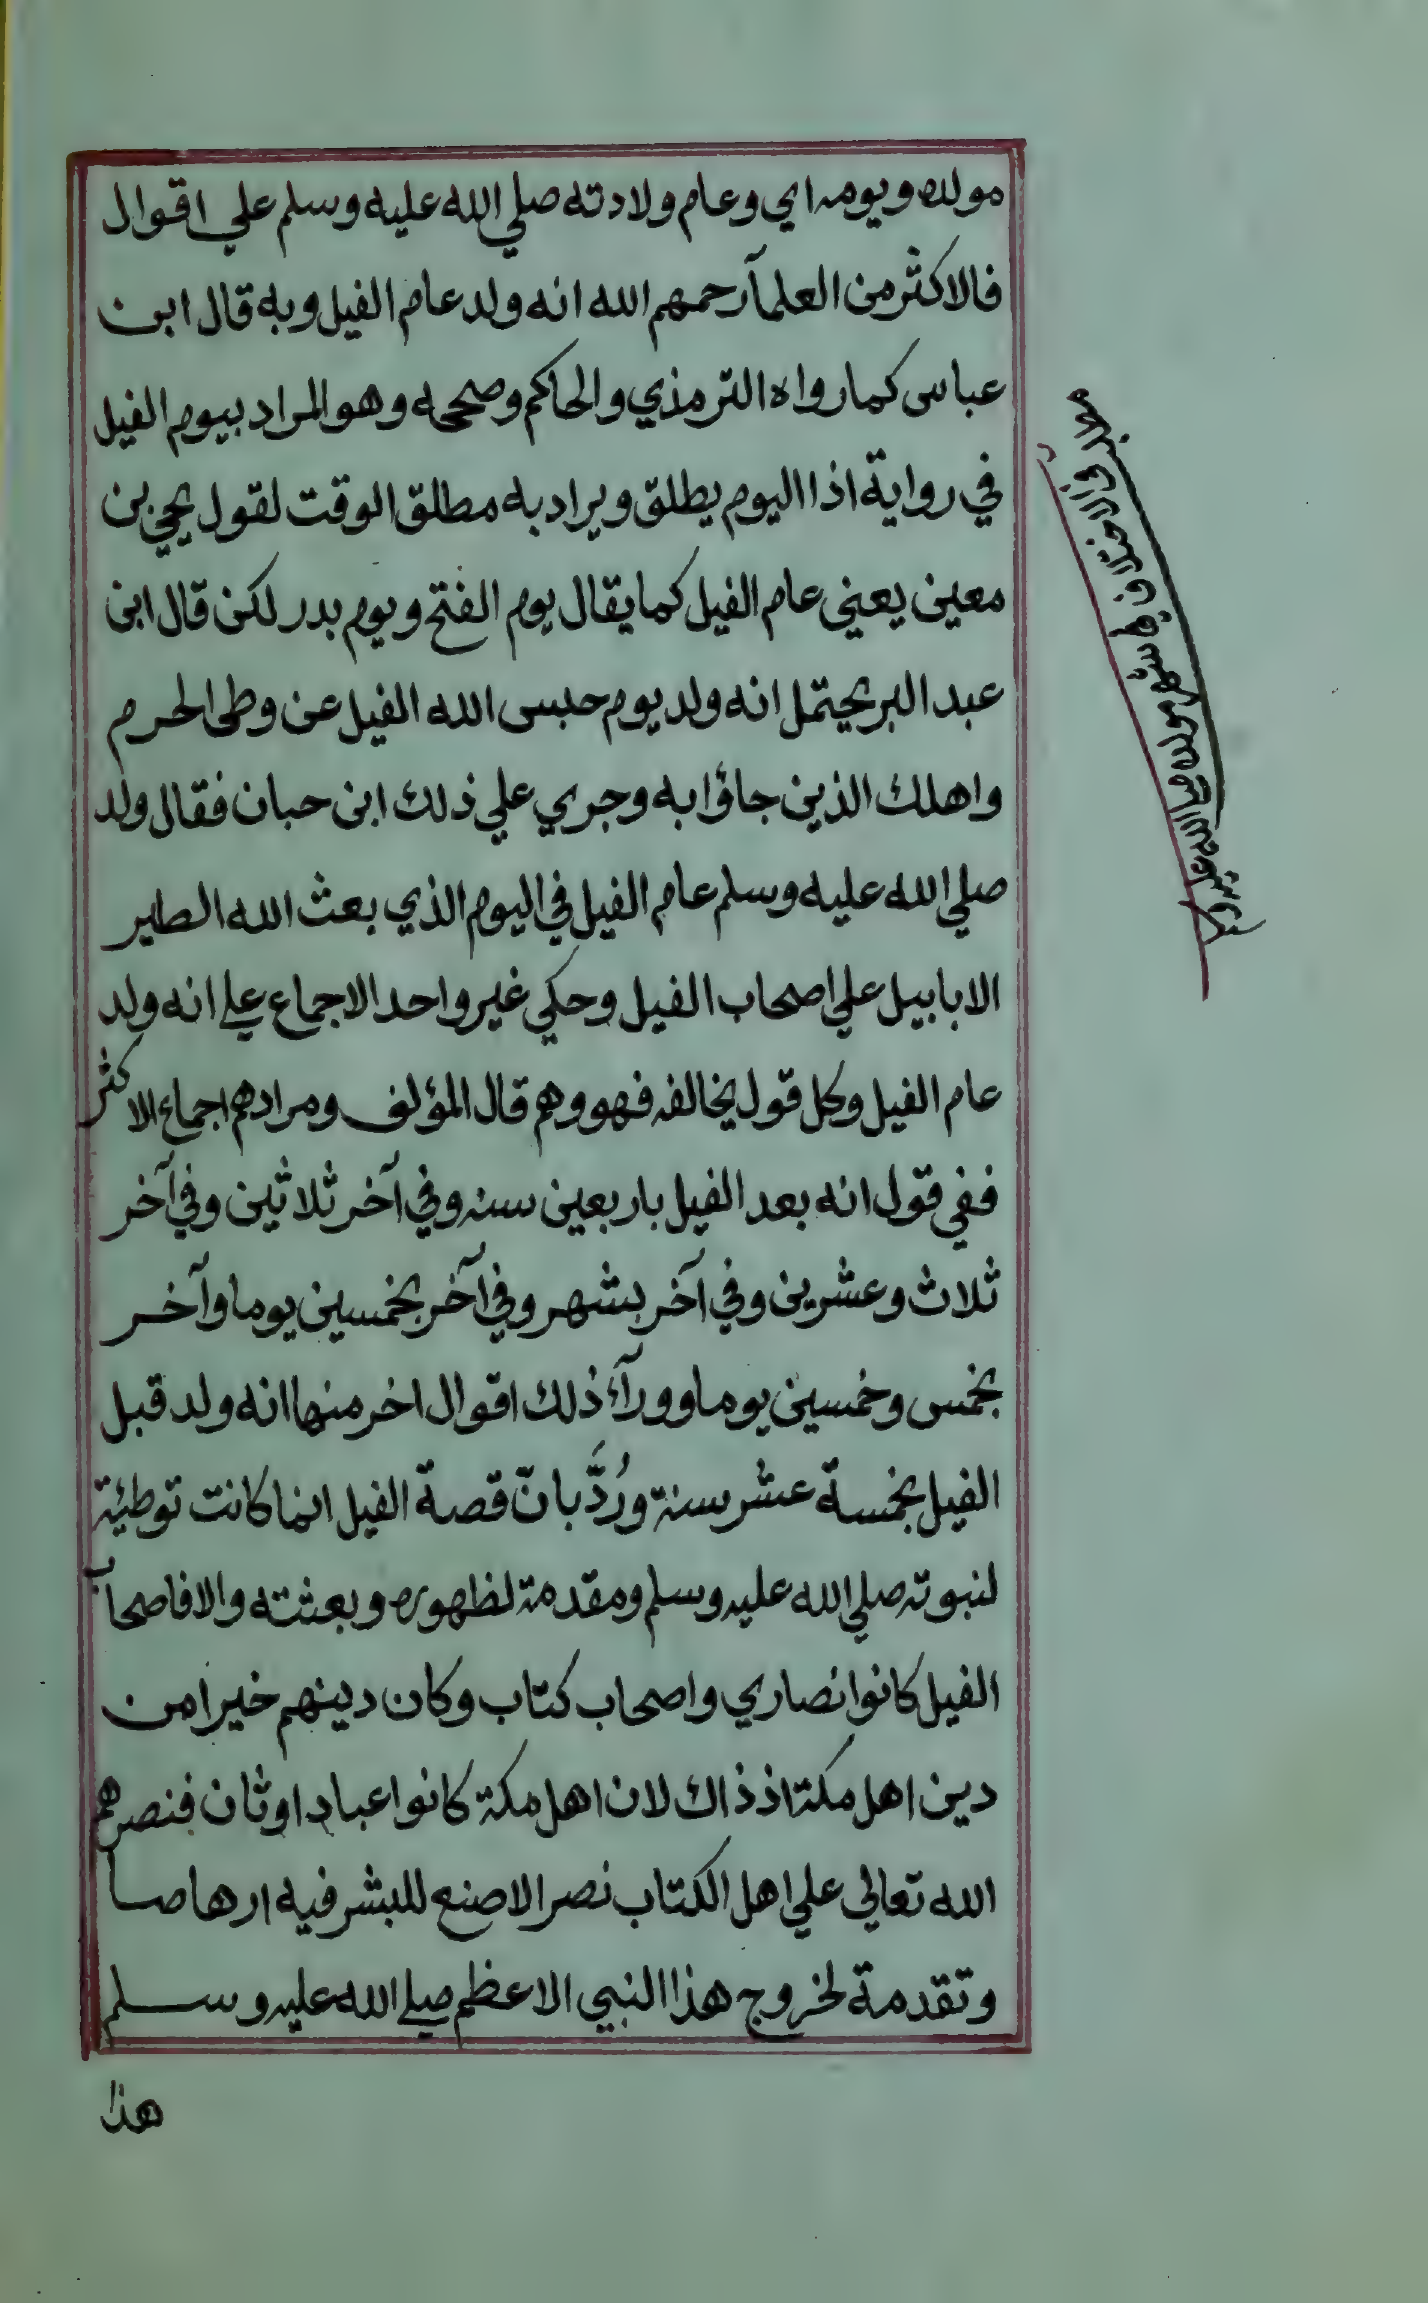 مولده ويومه اي وعام ولادته صلي الله عليه وسلم علي اقوال
فالاكثر من العلمآ رحمهم الله انه ولد عام الفيل وبه قال ابن
عباس كما رواه الترمذي والحاكم وصححه وهو المراد بيوم الفيل
في رواية اذا اليوم يطلق ويراد به مطلق الوقت لقول يحيي بن
معين يعني عام الفيل كما يقال يوم الفتح ويوم بدر لكن قال ابن
عبد البر يحتمل انه ولد يوم حبس الله الفيل عن وطئ الحرم
واهلك الذين جاؤا به وجري علي ذلك ابن حبان فقال ولد
صلي الله عليه وسلم عام الفيل في اليوم الذي بعث الله الطير
الابابيل علي اصحاب الفيل وحكي غير واحد الاجماع علي انه ولد
عام الفيل وكل قول يخالفه فهو وهم قال المؤلف ومرادهم اجماع الاكثر
ففي قول انه بعد الفيل باربعين سنه وفي آخر ثلاثين وفي آخر
ثلاث وعشرين وفي آخر بشهر وفي آخر بخمسين يوما وآخر
بخمس وخمسين يوما وورآء ذلك اقوال اخر منها انه ولد قبل
الفيل بخمسة عشر سنة ورُدَّ بانّ قصة الفيل انما كانت توطيئة
لنبوته صلي الله عليه وسلم ومقدمة لظهوره وبعثته والا فاصحاب
الفيل كانوا نصاري واصحاب كتاب وكان دينهم خيرا من
دين اهل مكة اذ ذاك لان اهل مكة كانوا عباد اوثان فنصرهم
الله تعالي علي اهل الكتاب نصر الاصنع للبشر فيه ارهاصا
وتقدمة لخروج هذا النبي الاعظم صلي الله عليه وسلم
هذا
في الاختلاف في شهر مولده صلي الله عليه وسلم